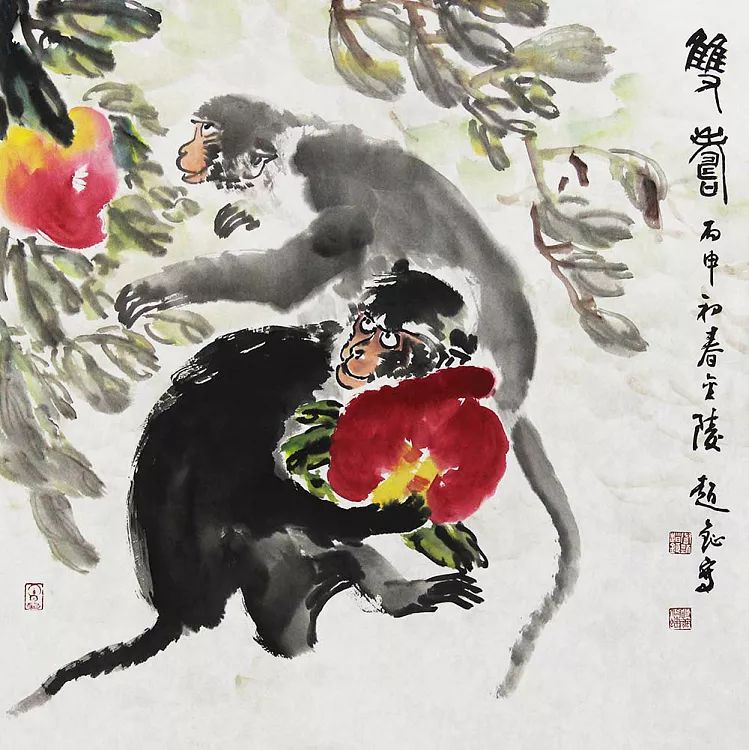 雙壽
丙申初春金陵
趙鉞寫